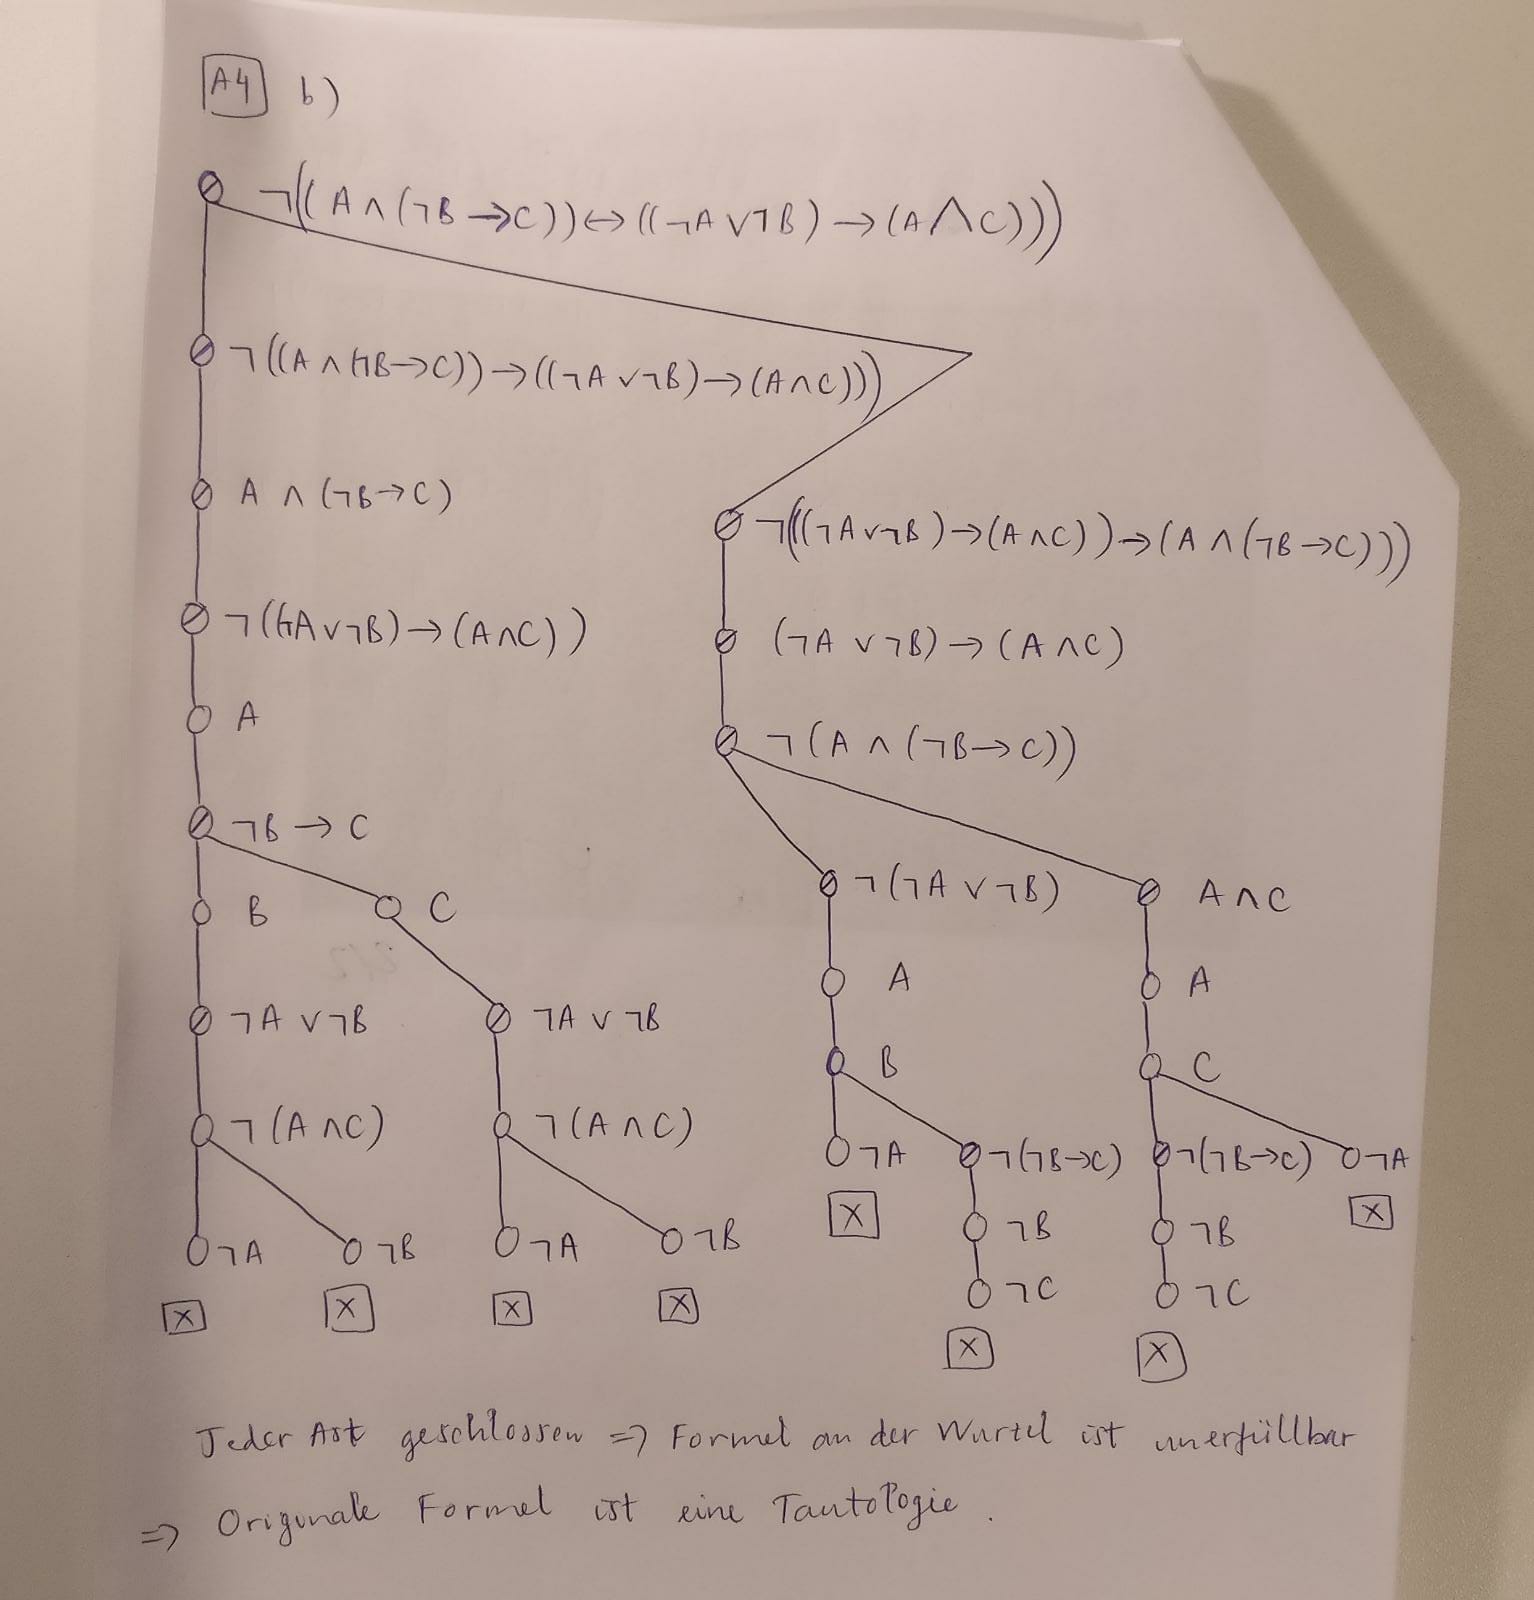 A4 b)
¬((A∧(¬B→C))↔((¬A∨¬B)→(A∧C)))
¬((A∧(¬B→C))→((¬A∨¬B)→(A∧C)))
A∧(¬B→C)
¬(((¬A∨¬B)→(A∧C))→(A∧(¬B→C)))
¬((¬A∨¬B)→(A∧C))
(¬A∨¬B)→(A∧C)
A
¬(A∧(¬B→C))
¬B→C
¬(¬A∨¬B) A∧C
B C
A A
¬A∨¬B ¬A∨¬B
B C
¬(A∧C) ¬(A∧C)
¬A ¬(¬B→C) ¬(¬B→C) ¬A
X X
¬B ¬B
¬A ¬B ¬A ¬B
¬C ¬C
X X X X
X X
Jeder Ast geschlossen ⇒ Formel an der Wurzel ist unerfüllbar
⇒ Originale Formel ist eine Tautologie.